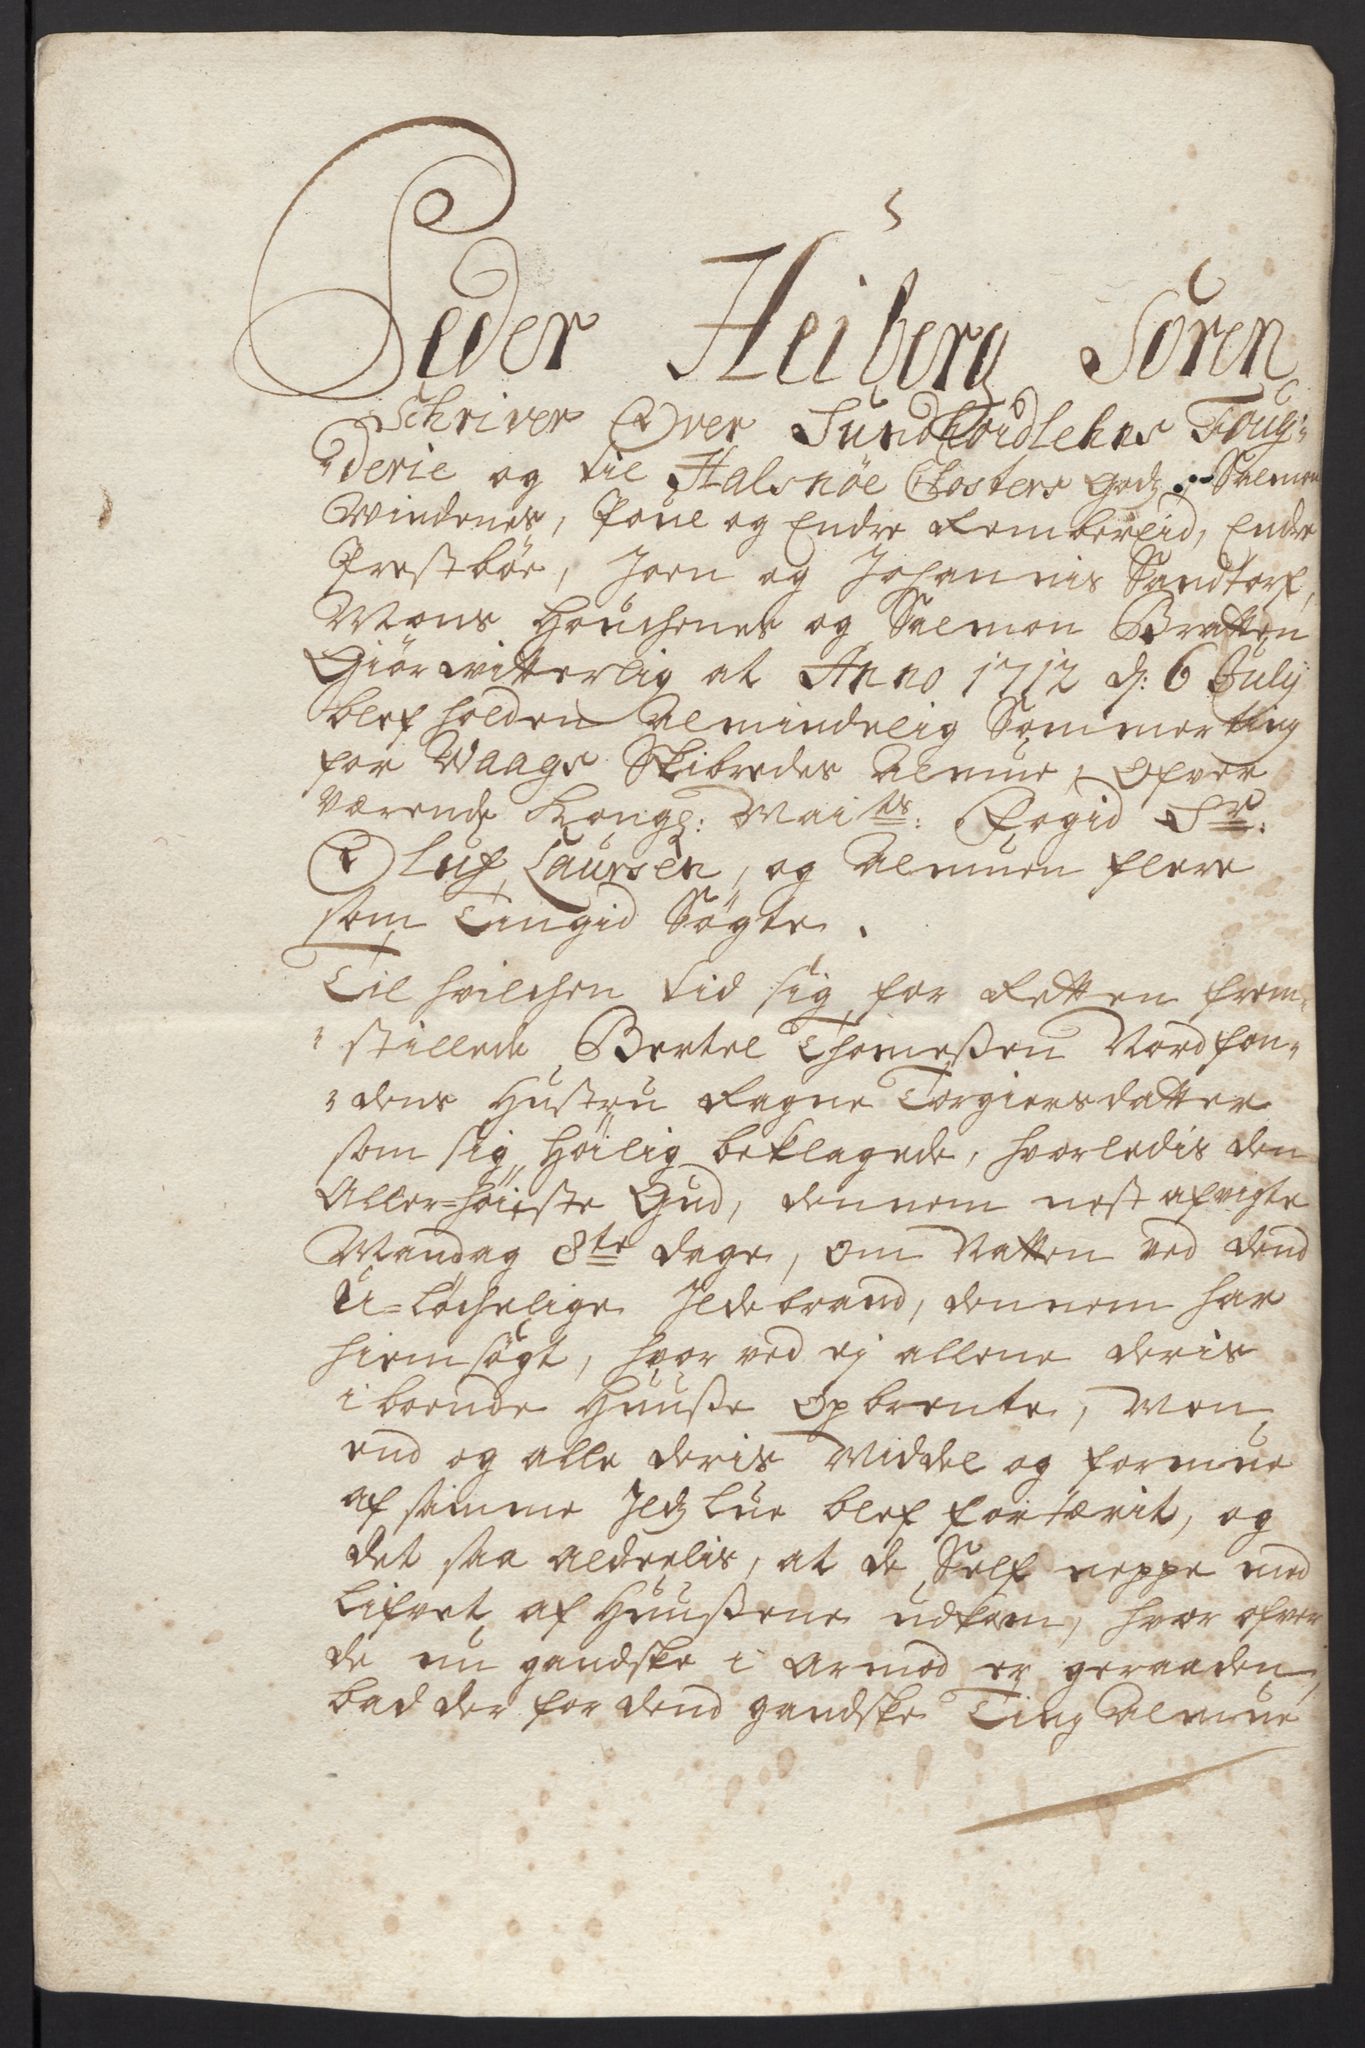 Peder Heiberg Soren
Schriver Over Sundhordlehns Foug¬
derie og til Halsnöe Closters godz, Salmon
Windenes, Poul og Endre Rembereid, Endre
Prestböe, Joen og Johannis Sandtorf,
Mons Houchenes og Salmon Bratten
Giör witterlig at Anno 1712 d: 6 Julij
blef holden Almindelig Sommerting
for Waags Skibredes Almue, Ofver
værende Kongl: Mai.ts: Fogid Sr:
Oluf Laursen, og Almuen flere
som Tingid Sögte.
Til hvilchen tid sig for Retten frem¬
stillede Bertel Thomeßen Nordfon¬
dens Hustru Ragne Torgiersdatter
som sig höilig beklagede, hvorledis den
Aller=höieste Gud, dennem nest afvigte
Mandag 8te dage, om Natten ved dend
U=löchelige Ildebrand, dennem har
hiemsögt, hvor ved ej allene deris
iboende Huuße Opbrente, Men
end og alle deris Middel og formue
af samme Ildz Lue blef fortærit, og
det saa aldeelis, at de Self neppe med
Lifvet af Huußene udkom, hvor ofver
de nu gandske i armod er geraaden,
bad der for dend gandske Ting Almue